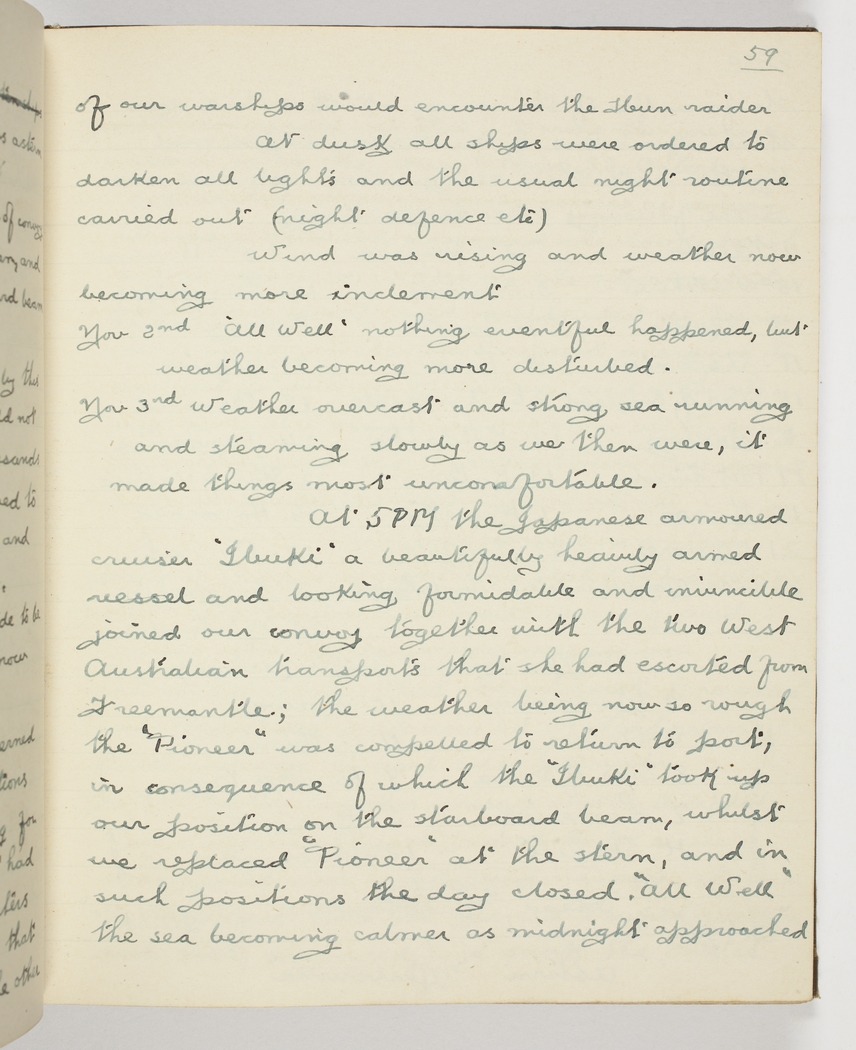 59
of our warships would encounter the Hun raider
At dusk all ships were ordered to
darken all lights and the usual night routine
carried out (night defence etc)
Wind was rising and weather now
becoming more inclement
Nov 2nd "All Well" nothing eventful happened, but
weather becoming more disturbed.
Nov 3rd Weather overcast and strong sea running
and steaming slowly as we then were, it
made things most uncomfortable.
At 5PM the Japanese armoured
cruiser "Ibuki" a beautifully heavily armed
vessel and looking formidable and invincible
joined our convoy together with the two West
Australian transports that she had escorted from
Freemantle; the weather being now so rough
the "Pioneer" was compelled to return to port,
in consequence of which the "Ibuki" took up
our position on the starboard beam, whilst
we replaced "Pioneer" at the stern, and in
such positions the day closed. "All Well"
the sea becoming calmer as midnight approached
s astern
of convoy
and
rd beam
by this
ld not
sands
ed to
and
de to be
now
erned
tions
g for
had
ters
that
e other